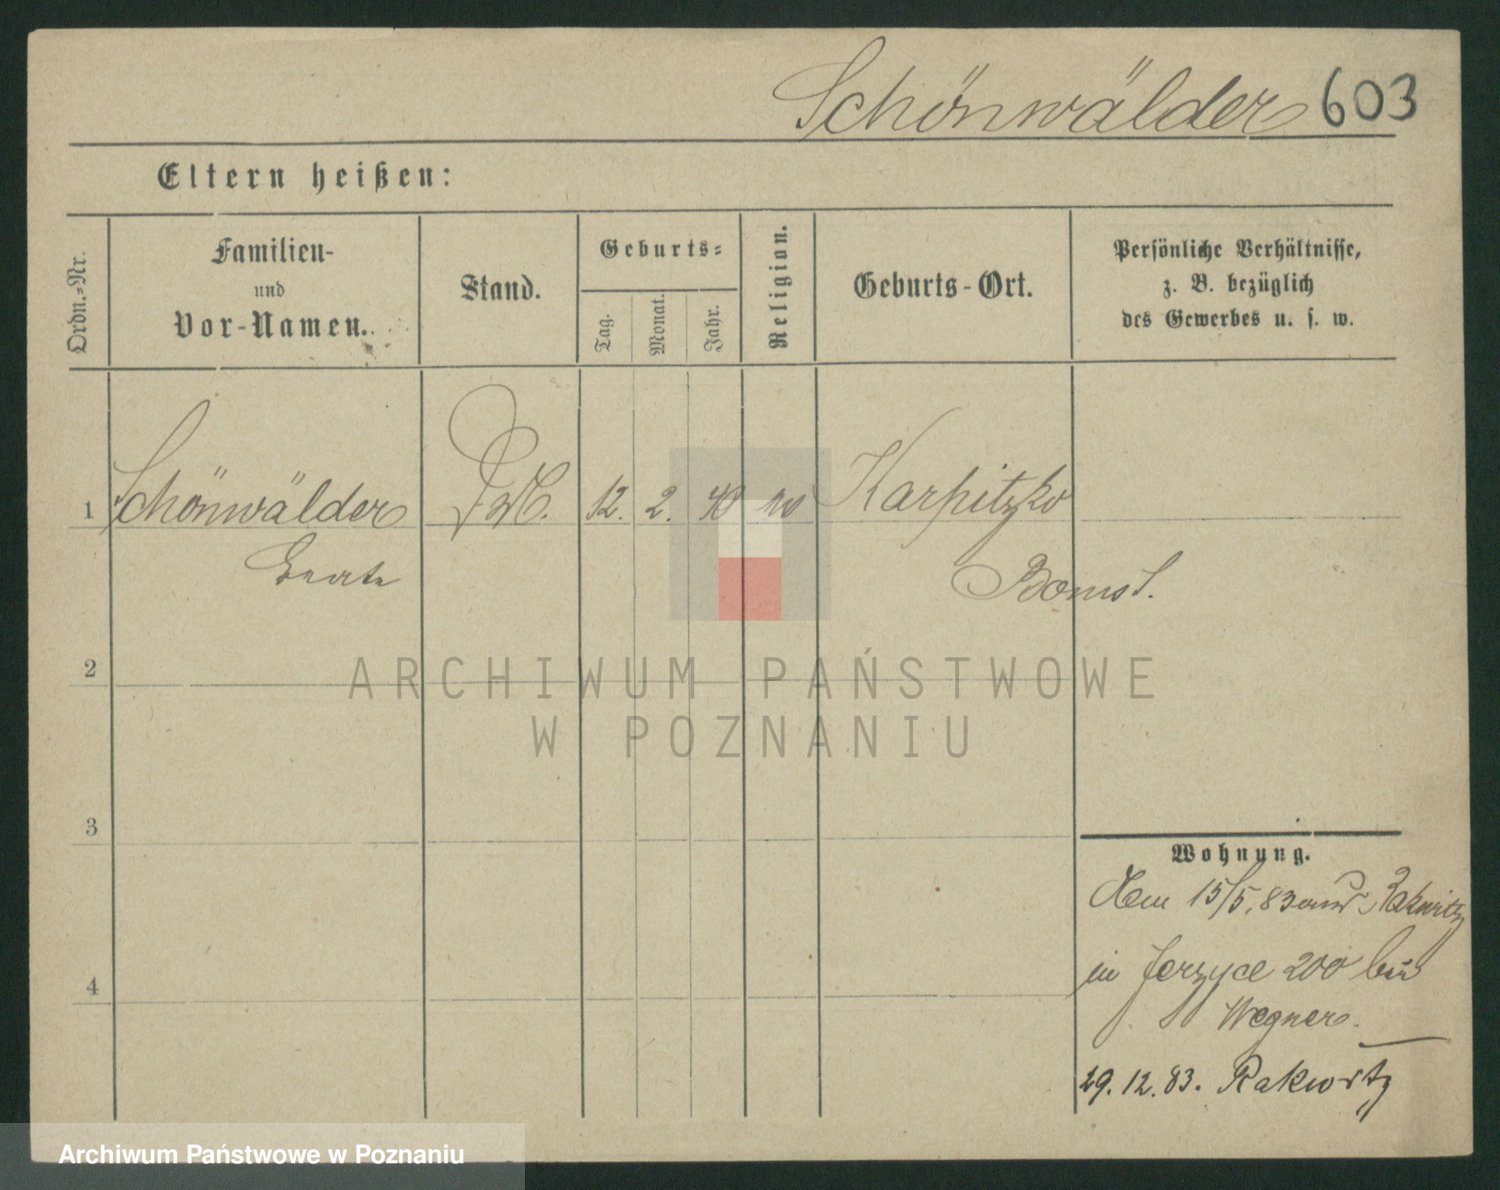 Schönwälder 603
Eltern heißen:
Ordn.-Nr.
Familien-
und
Vor-Namen.
Stand.
Geburts-
Tag.
Monat.
Jahr.
Religion.
Geburts-Ort.
Persönliche Verhältnisse,
z. B. bezüglich
des Gewerbes u. s. w.
1 Schönwälder 12. 2. 40 Karpitzko
Beate
Bomst.
2
ARCHIWUM PAŃSTWOWE
W POZNANIU
3
4
Wohnung.
15/5.83 aus Rakwitz
in Jerzyce 200 bei
Wegner.
29.12.83. Rakwitz
Archiwum Państwowe w Poznaniu